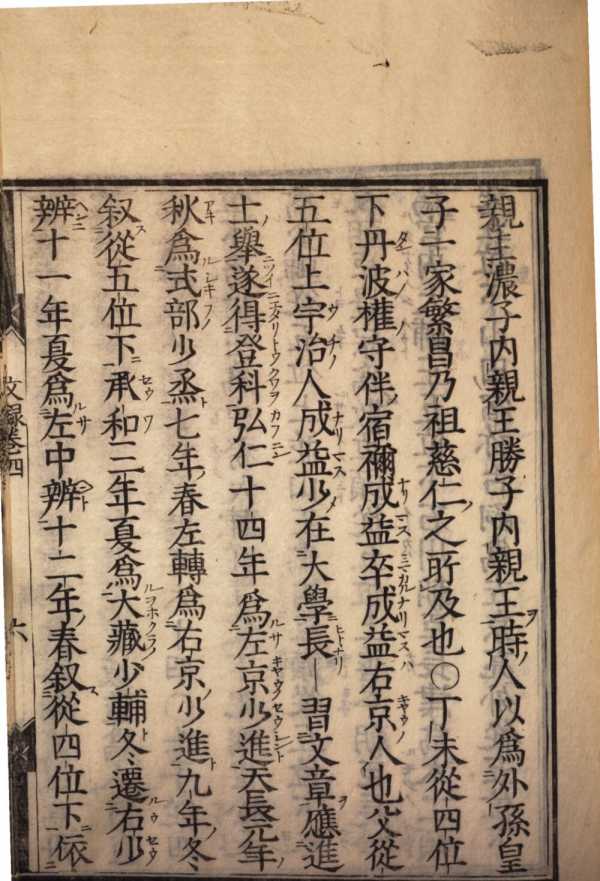 親王濃子内親王勝子内親王時人以爲外孫皇
子一家繁昌乃祖慈仁之所及也〇丁未從四位
下丹波權守伴宿禰成益卒成益右京人也父從
五位上宇治人成益少在大學長—習文章應進
士舉遂得登科弘仁十四年爲左京少進天長元年
秋爲式部少丞七年春左轉爲右京少進九年冬
叙從五位下承和三年夏爲大藏少輔冬遷右少
辨十一年夏爲左中辨十二年春叙從四位下依
文録卷四
六